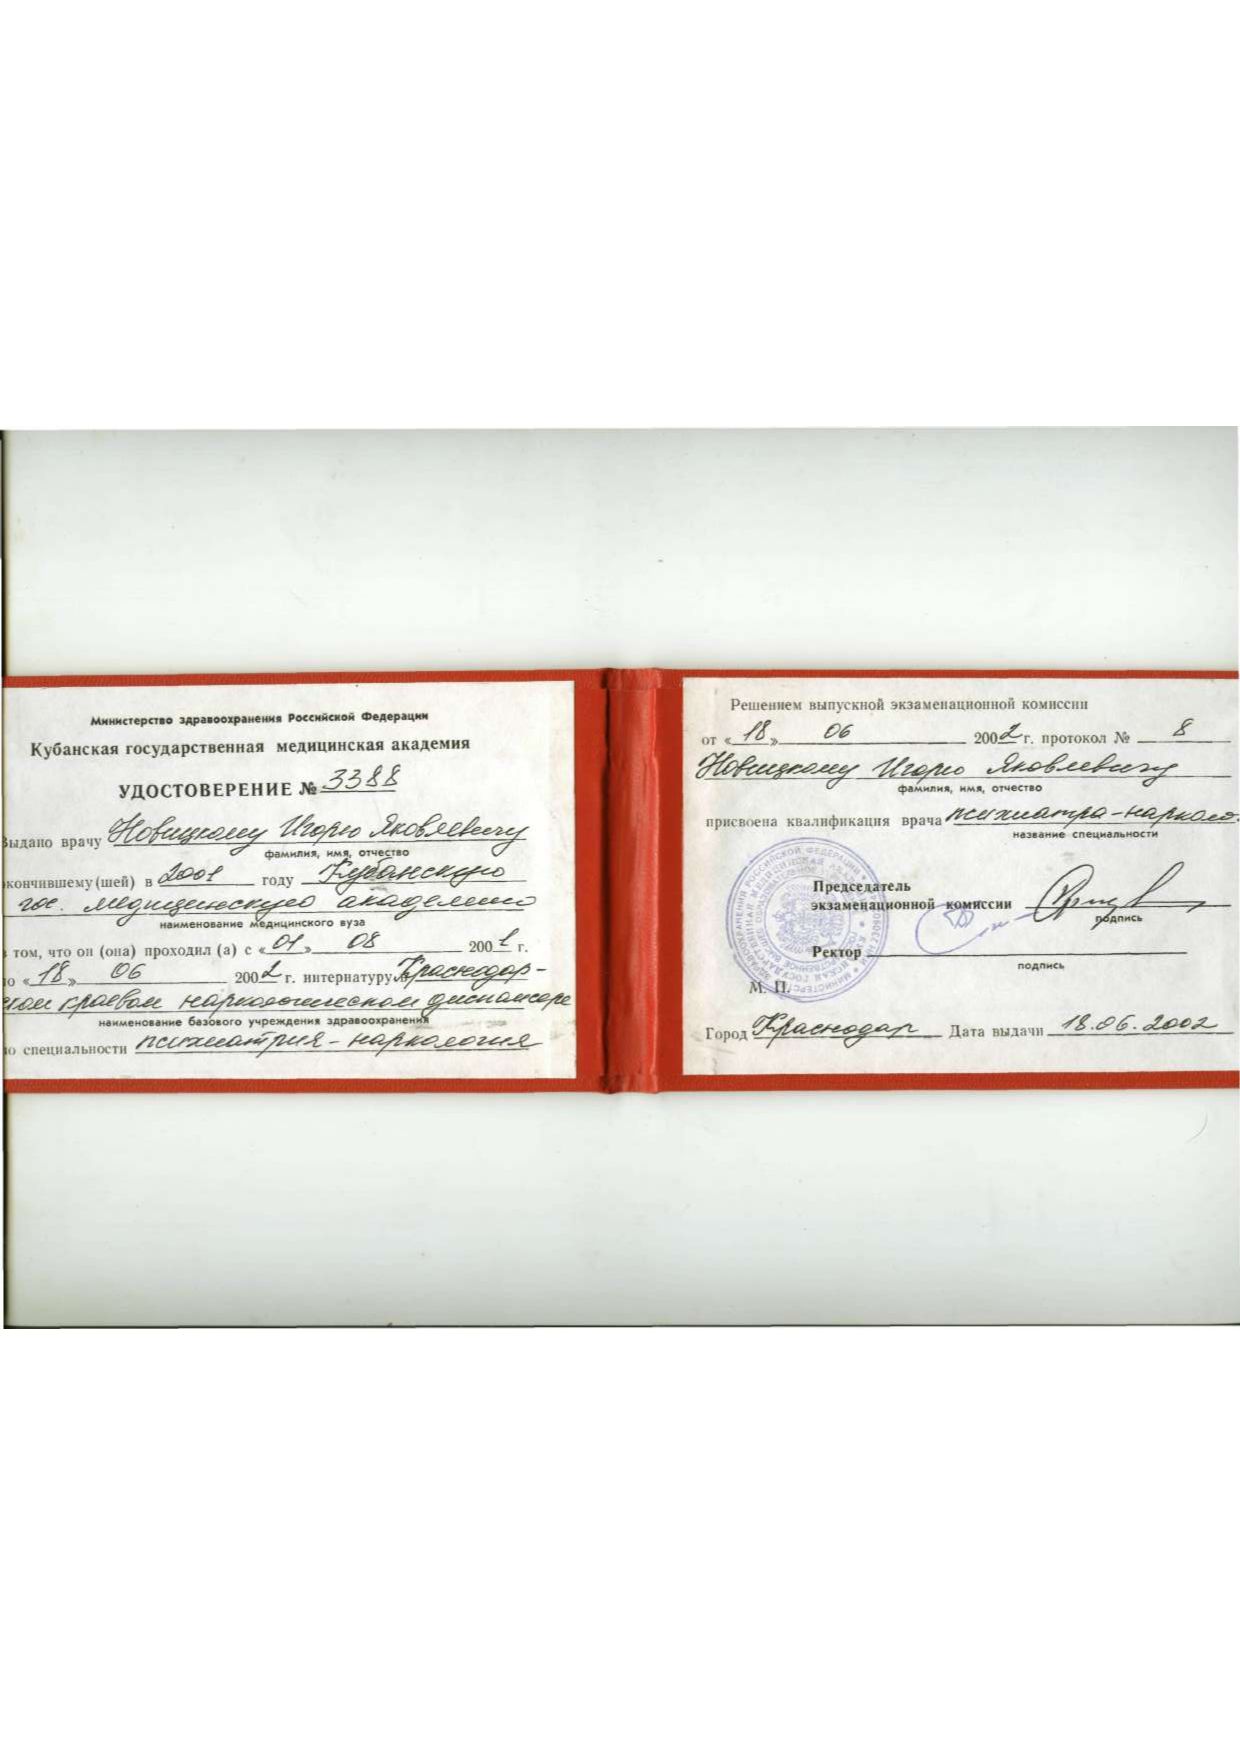 Министерство здравоохранения Российской Федерации
Кубанская государственная медицинская академия
УДОСТОВЕРЕНИЕ № 3388
Выдано врачу Новицкому Игорю Яковлевичу
фамилия, имя, отчество
окончившему (шей) в 2001 году Кубанскую
гос. медицинскую академию
наименование медицинского вуза
в том, что он (она) проходил (а) с «01» 08 2001 г.
по «18» 06 2002 г. интернатуру в Краснодар-
ском краевом наркологическом диспансере
наименование базового учреждения здравоохранения
по специальности психиатрия-наркология
Решением выпускной экзаменационной комиссии
от «18» 06 2002 г. протокол № 8
Новицкому Игорю Яковлевичу
фамилия, имя, отчество
присвоена квалификация врача психиатра-нарколо.
название специальности
Председатель
экзаменационной комиссии
подпись
Ректор
подпись
М. П.
Город Краснодар Дата выдачи 18.06.2002